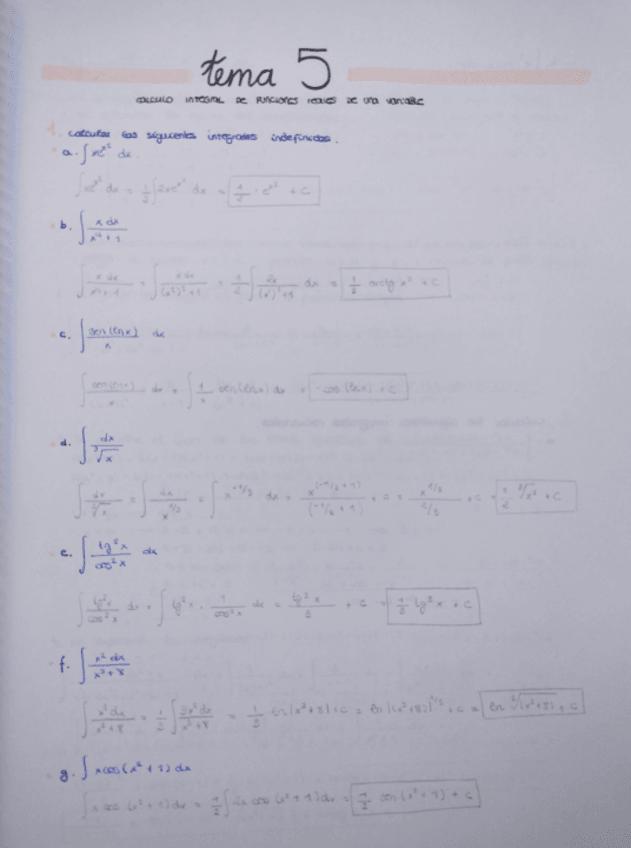 tema 5
CALCULO INTEGRAL DE FUNCIONES REALES DE UNA VARIABLE
1. calcular las siguientes integrales indefinidas.
a. ∫xe^{x²} dx.
∫xe^{x²} dx = 1/2 ∫2xe^{x²} dx = 1/2 · e^{x²} + C
b. ∫ x dx / x⁴ + 1
∫ x dx / x⁴ + 1 = ∫ x dx / (x²)² + 1 = 1/2 ∫ 2x / (x²)² + 1 dx = 1/2 arctg x² + C
c. ∫ sen(lnx) / x dx
∫ sen(lnx) / x dx = ∫ 1/x sen(lnx) dx = -cos(lnx) + C
d. ∫ dx / ³√x
∫ dx / ³√x = ∫ dx / x^{1/3} = ∫ x^{-1/3} dx = x^{(-1/3 + 1)} / (-1/3 + 1) + C = x^{2/3} / 2/3 + C =
e. ∫ / cos² x dx
∫ / cos² x dx = ∫ · 1 / cos² x dx =
f. ∫ x² dx / x³ + 8
∫ x² dx / x³ + 8 = 1/3 ∫ 3x² dx / x³ + 8 = 1/3 ln|x³ + 8| + C = ln|(x³ + 8)|^{1/3} + C = ln ³√(x³ + 8) + C
g. ∫ x cos(x² + 1) dx
∫ x cos (x² + 1) dx = 1/2 ∫ 2x cos (x² + 1) dx = 1/2 sen(x² + 1) + C